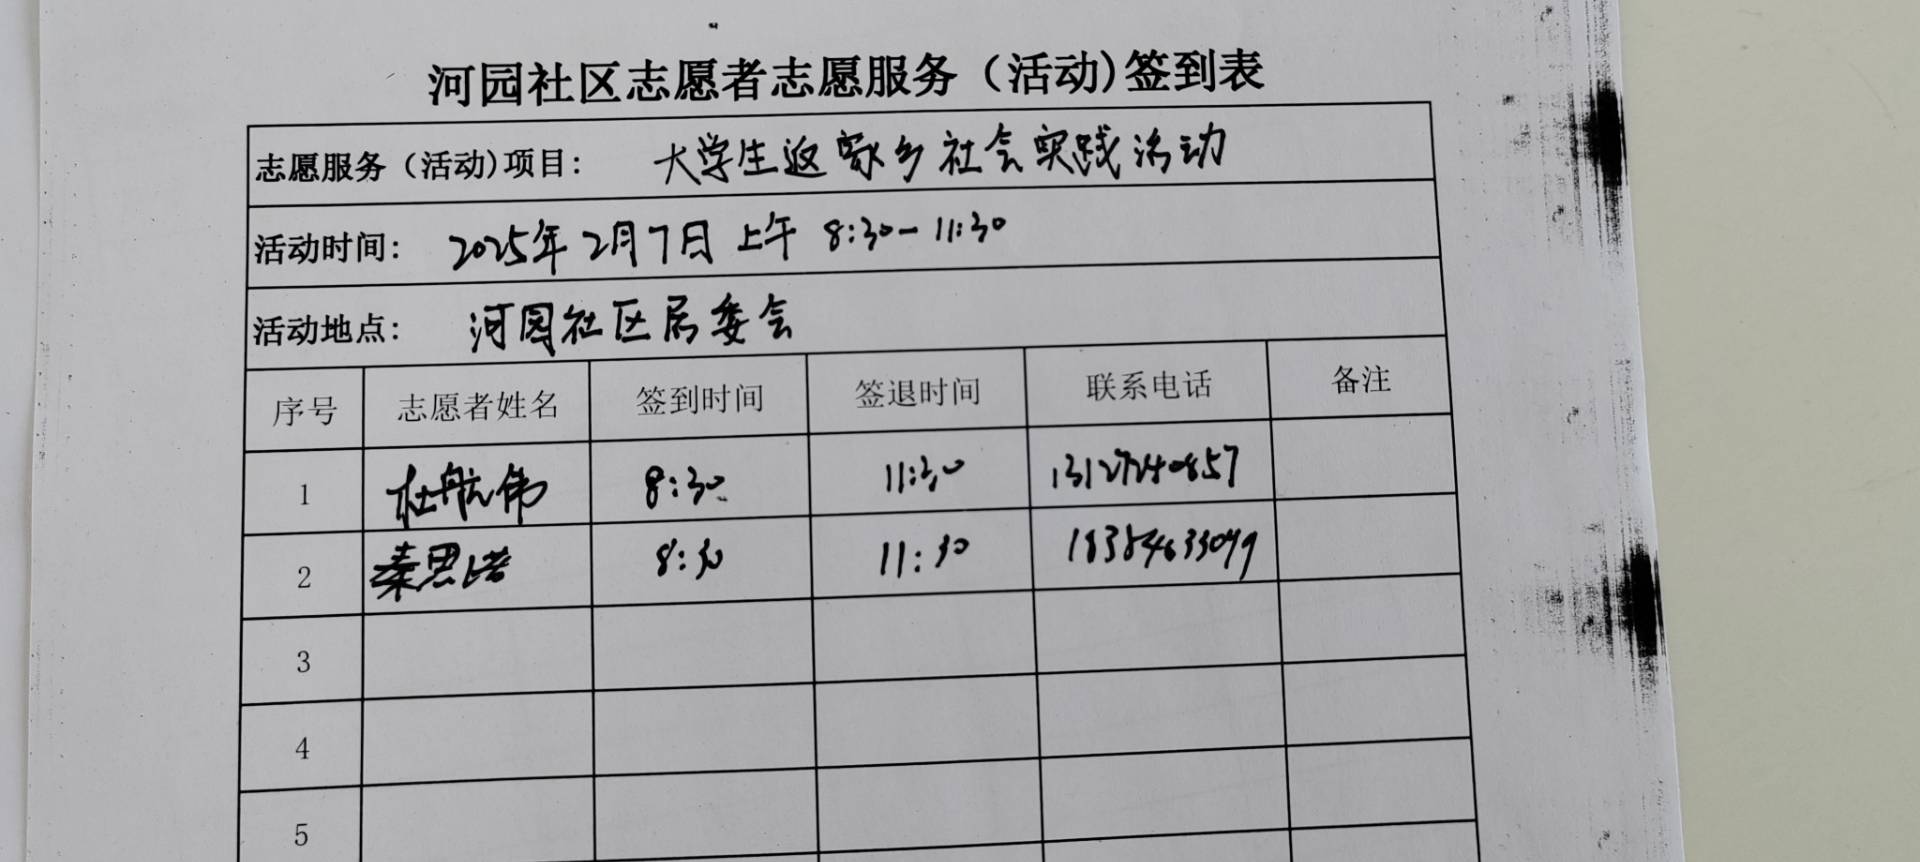 河园社区志愿者志愿服务（活动)签到表
志愿服务（活动)项目: 大学生返家乡社会实践活动
活动时间: 2025年2月7日上午 8:30-11:30
活动地点: 河园社区居委会
序号 志愿者姓名 签到时间 签退时间 联系电话 备注
1 杜航伟 8:30 11:30 13127240857
2 秦思诺 8:30 11:30 18384633049
3
4
5